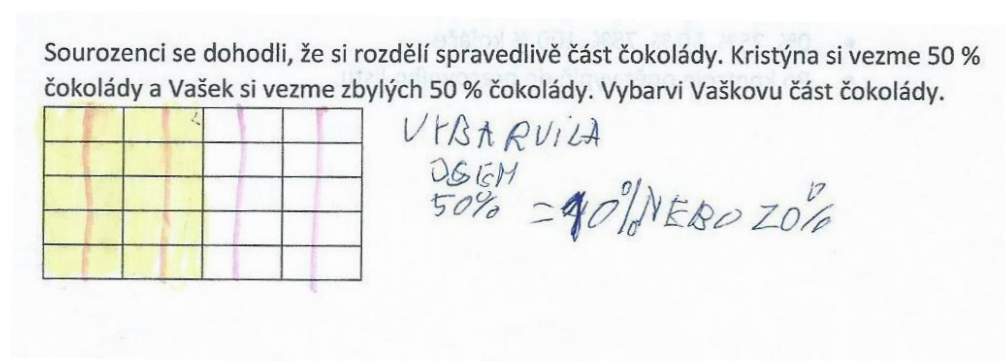 Sourozenci se dohodli, že si rozdělí spravedlivě část čokolády. Kristýna si vezme 50 %
čokolády a Vašek si vezme zbylých 50 % čokolády. Vybarvi Vaškovu část čokolády.
VYBARVILA
JSEM
50% = 10% NEBO 20%